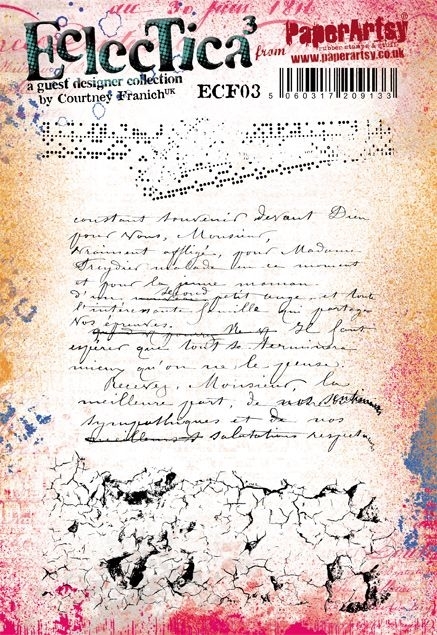 au 30 juin 18
EclecTica³
from PaperArtsy
rubber stamps & stuff
www.paperartsy.co.uk
a guest designer collection
by Courtney Franich UK
ECF03
5 060317 209133
constant souvenir devant Dieu
pour vous, Monsieur,
vraiment affligé, pour Madame
malade en ce moment
et pour la jeune maman
d'un second petit ange, et toute
l'intéressante famille qui partagea
vos épreuves. Il faut
espérer que tout se terminera
mieux qu'on ne le pense.
Recevez, Monsieur, la
meilleure part, de nos sentiments
sympathiques et de nos
salutations respect